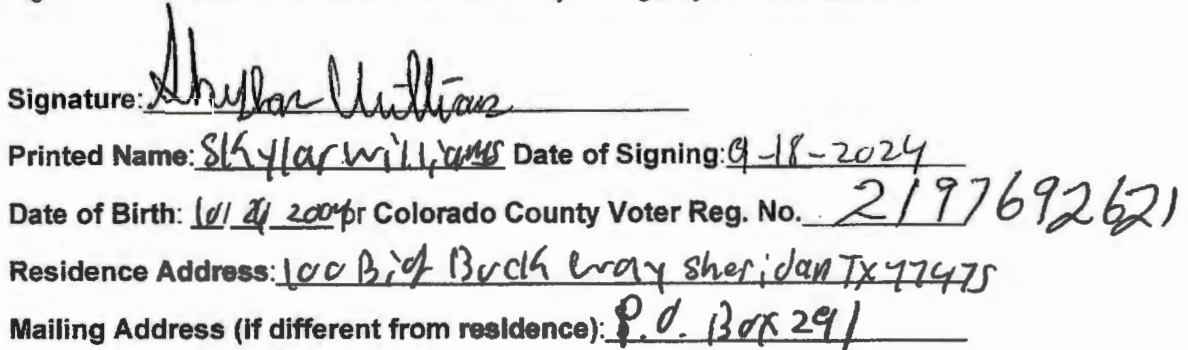 Signature: Skylar Williams
Printed Name: Skylar Williams Date of Signing: 9-18-2024
Date of Birth: or Colorado County Voter Reg. No. 2197692621
Residence Address: 100 Big Buck Way Sheridan TX 77475
Mailing Address (if different from residence): P.O. Box 291